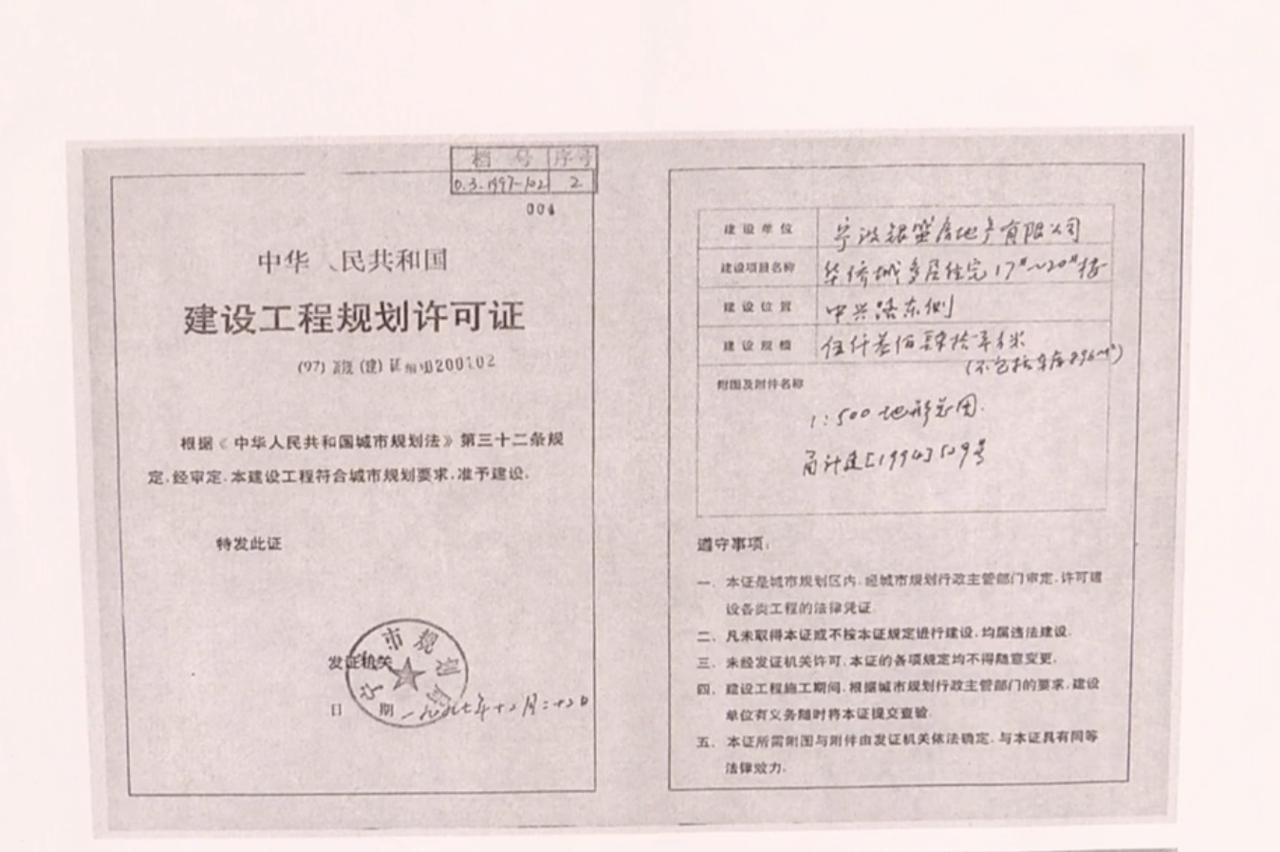 档 号 序号
0.3.1997-102 2
004
中华人民共和国
建设工程规划许可证
(97) 浙规 (建) 证 编号 0200102
根据《中华人民共和国城市规划法》第三十二条规
定,经审定,本建设工程符合城市规划要求,准予建设。
特发此证
发证机关
市规划
日 期 一九九七年十二月二十二日
建设单位 宁波银盛房地产有限公司
建设项目名称 华侨城多层住宅17#~20#楼
建设位置 中兴路东侧
建设规模 伍仟叁佰肆拾平方米
(不包括车库896m²)
附图及附件名称
1:500地形总图.
甬计建[1994]509号
遵守事项:
一、本证是城市规划区内,经城市规划行政主管部门审定,许可建
设各类工程的法律凭证.
二、凡未取得本证或不按本证规定进行建设,均属违法建设.
三、未经发证机关许可,本证的各项规定均不得随意变更.
四、建设工程施工期间,根据城市规划行政主管部门的要求,建设
单位有义务随时将本证提交查验.
五、本证所需附图与附件由发证机关依法确定,与本证具有同等
法律效力.